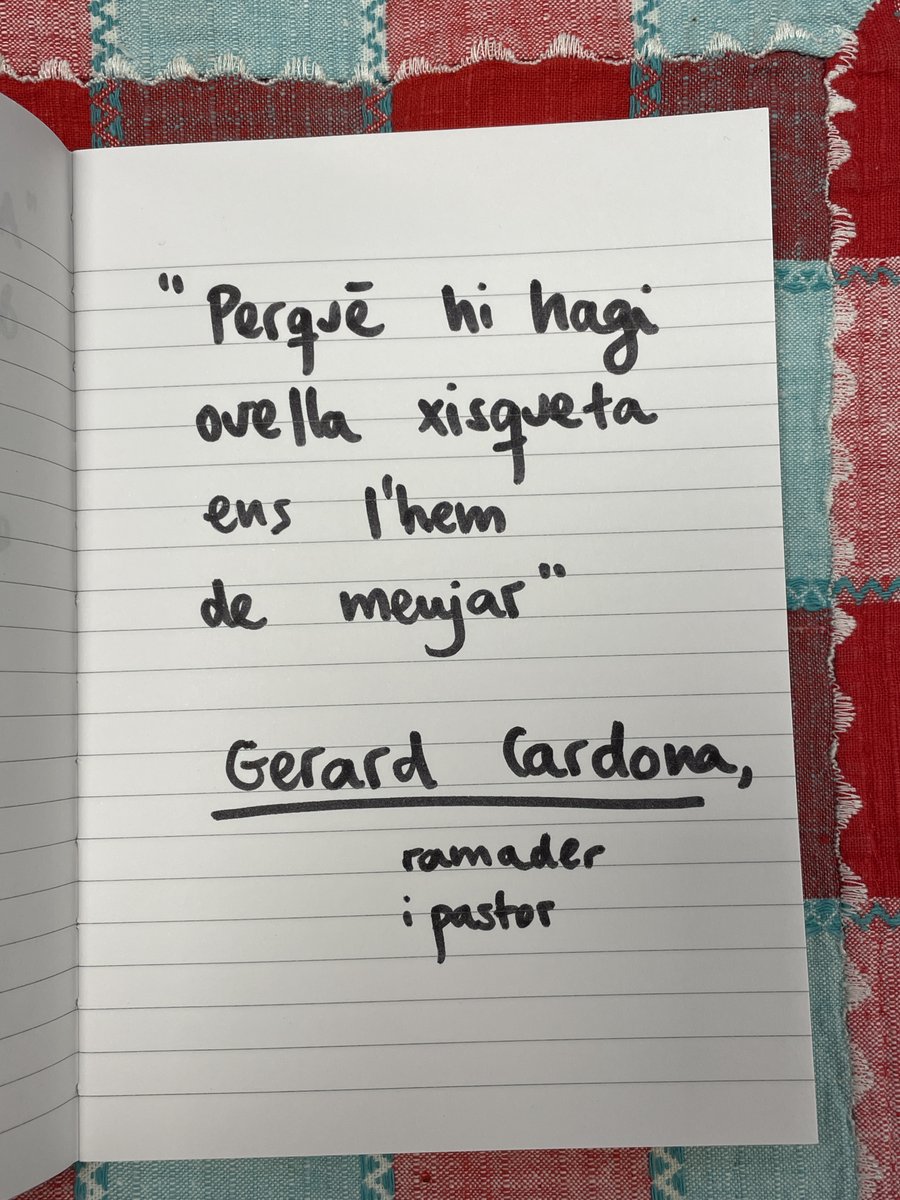 "Perquē hi hagi
ovella xisqueta
ens l'hem
de menjar"
Gerard Cardona,
ramader
i pastor